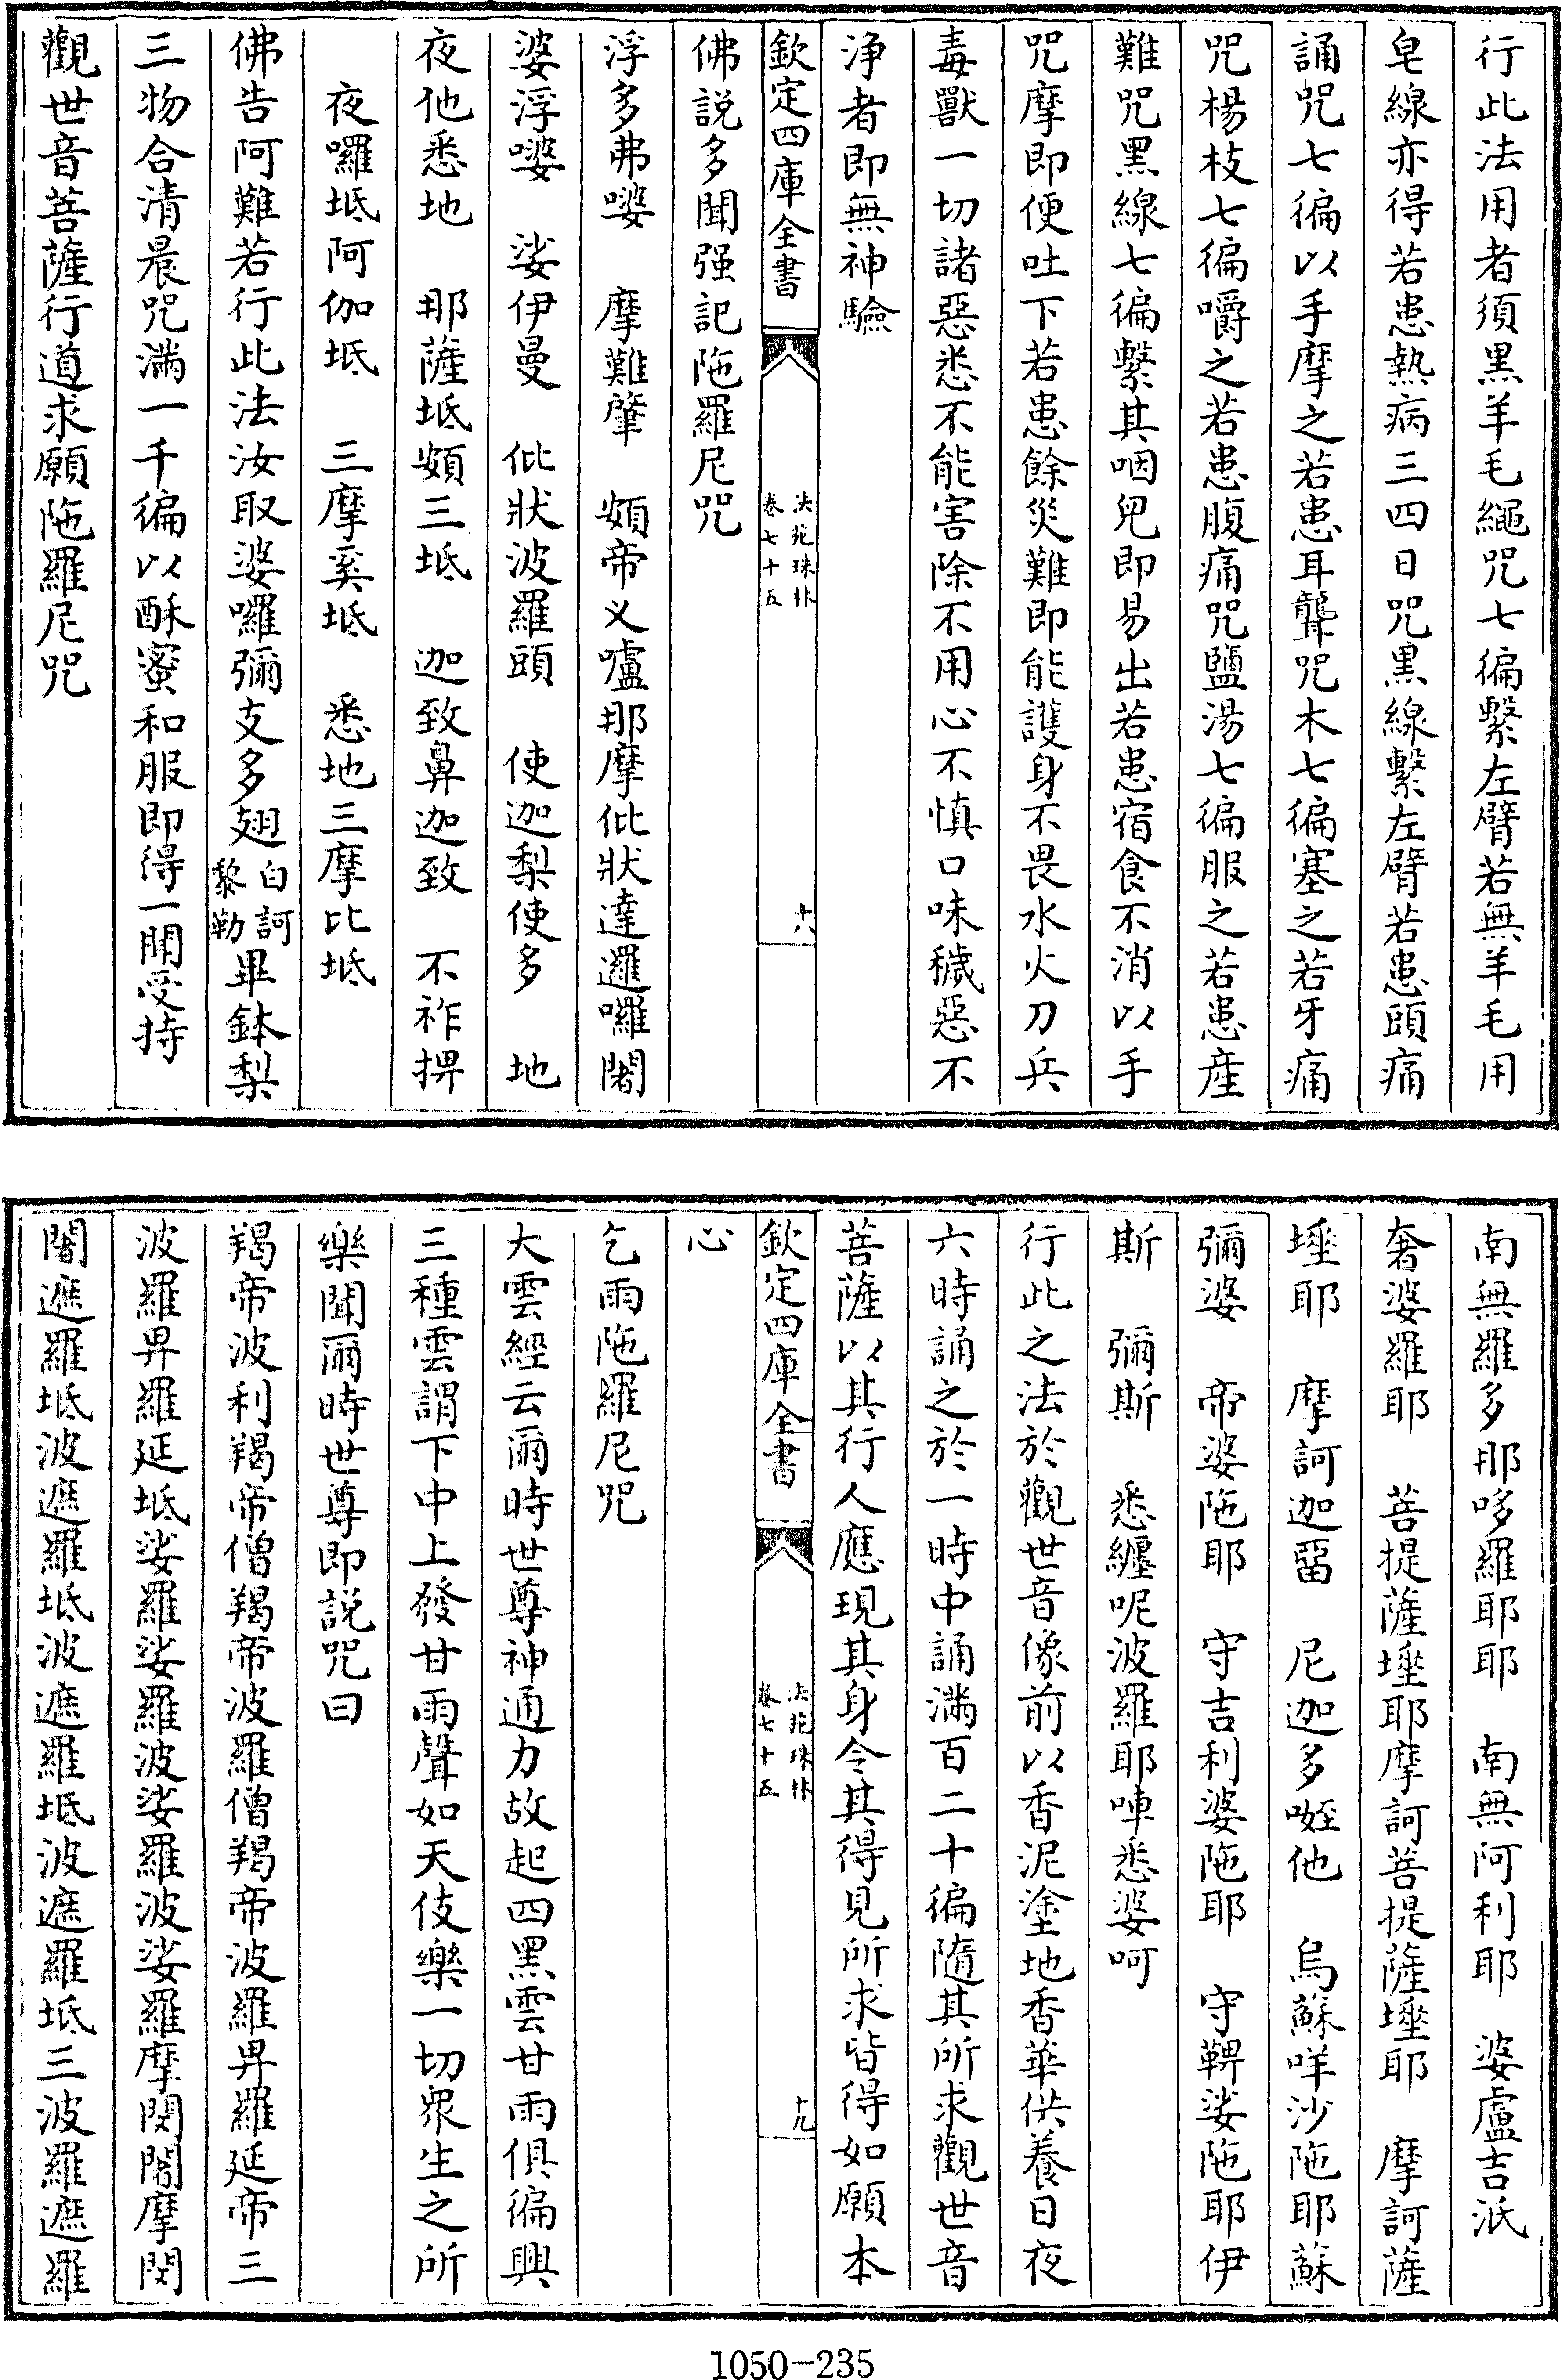 行此法用者須黑羊毛繩咒七徧繫左臂若無羊毛用
皂線亦得若患熱病三四日咒黑線繫左臂若患頭痛
誦咒七徧以手摩之若患耳聾咒木七徧塞之若牙痛
咒楊枝七徧嚼之若患腹痛咒鹽湯七徧服之若患產
難咒黑線七徧繫其咽兒即易出若患宿食不消以手
咒摩即便吐下若患餘災難即能護身不畏水火刀兵
毒獸一切諸惡悉不能害除不用心不慎口味穢惡不
淨者即無神驗
欽定四庫全書 法苑珠林 卷七十五 十八
佛説多聞强記陁羅尼咒
浮多弗㗑 摩難肇 頞帝义嚧那摩仳狀達邏囉闍
婆浮㗑 娑伊曼 仳狀波羅頭 使迦梨使多 地
夜他悉地 那薩坻頞三坻 迦致鼻迦致 不祚捭
夜囉坻阿伽坻 三摩奚坻 悉地三摩比坻
佛告阿難若行此法汝取婆囉彌支多翅白訶黎勒畢鉢梨
三物合清晨咒滿一千徧以酥蜜和服即得一聞受持
觀世音菩薩行道求願陁羅尼咒
南無羅多那哆羅耶耶 南無阿利耶 婆盧吉泜
奢婆羅耶 菩提薩埵耶摩訶菩提薩埵耶 摩訶薩
埵耶 摩訶迦䛐 尼迦多咥他 烏蘇咩沙陁耶蘇
彌婆 帝婆陁耶 守吉利婆陁耶 守鞞娑陁耶伊
斯 彌斯 悉纏呢波羅耶啑悉婆呵
行此之法於觀世音像前以香泥塗地香華供養日夜
六時誦之於一時中誦滿百二十徧隨其所求觀世音
菩薩以其行人應現其身令其得見所求皆得如願本
心
欽定四庫全書 法苑珠林 卷七十五 十九
乞雨陁羅尼咒
大雲經云爾時世尊神通力故起四黑雲甘雨俱徧興
三種雲謂下中上發甘雨聲如天伎樂一切衆生之所
樂聞爾時世尊即説咒曰
羯帝波利羯帝僧羯帝波羅僧羯帝波羅卑羅延帝三
波羅卑羅延坻娑羅娑羅波娑羅波娑羅摩閔闍摩閔
闍遮羅坻波遮羅坻波遮羅坻波遮羅坻三波羅遮羅
1050-235